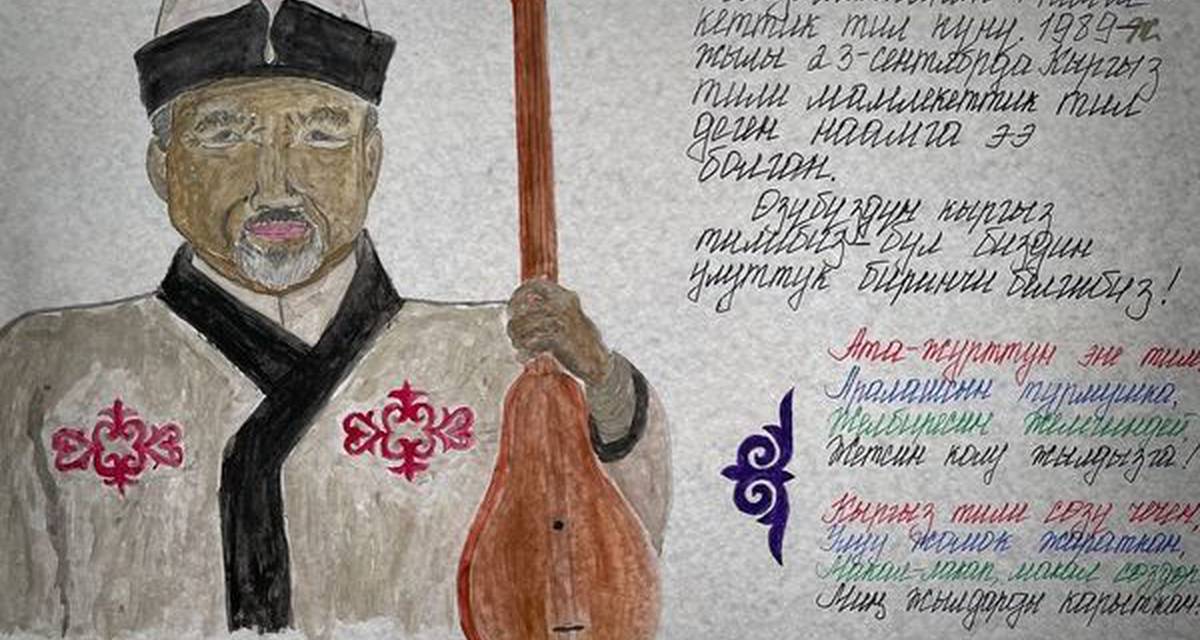 кеттик тил күнү. 1989-ж.
жылы 23-сентябрда Кыргыз
тили мамлекеттик тил
деген наамга ээ
болган.
Өзүбүздүн кыргыз
тилибиз - бул биздин
улуттук биринчи белгибиз!
Ата-журттун эне тили
Аралашсын турмушка,
Желбиресин желегиндей
Жетсин колу жылдызга!
Кыргыз тили сөзү чечен,
Улуу жомок жараткан,
Макал-лакап, макал сөздөн
Миң жылдарды карыткан.